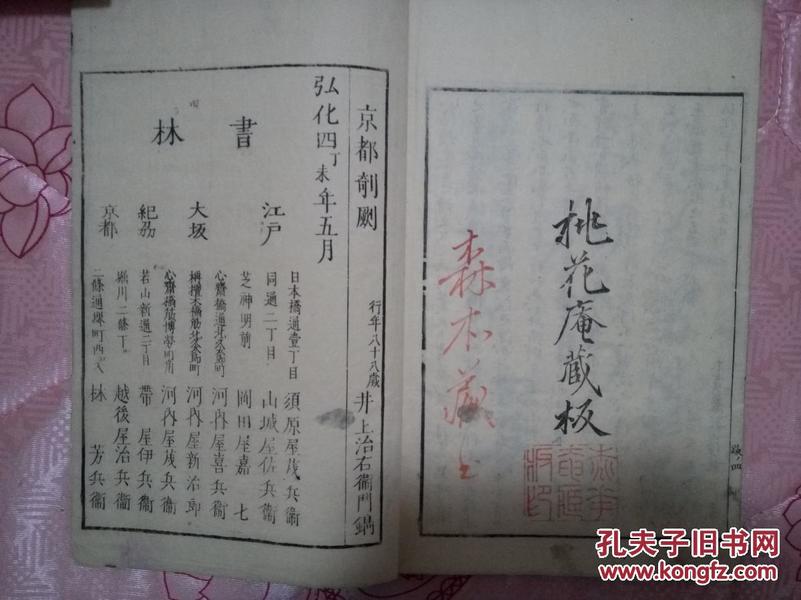 桃花庵蔵板
森本蔵
跋ノ四
京都剞劂
行年八十八歳 井上治右衛門鐫
弘化四丁未年五月
書林
江戸
日本橋通壹丁目 須原屋茂兵衞
同通二丁目 山城屋佐兵衞
芝神明前 岡田屋嘉七
大坂
心齋橋通北久太郎町 河内屋喜兵衞
河内屋新治郎
心齋橋筋博勞町角 河内屋茂兵衞
紀刕
若山新通二丁目 帶屋伊兵衞
堀川二條下 越後屋治兵衞
京都
二條通堺町西入 林芳兵衞
孔夫子旧书网
www.kongfz.com